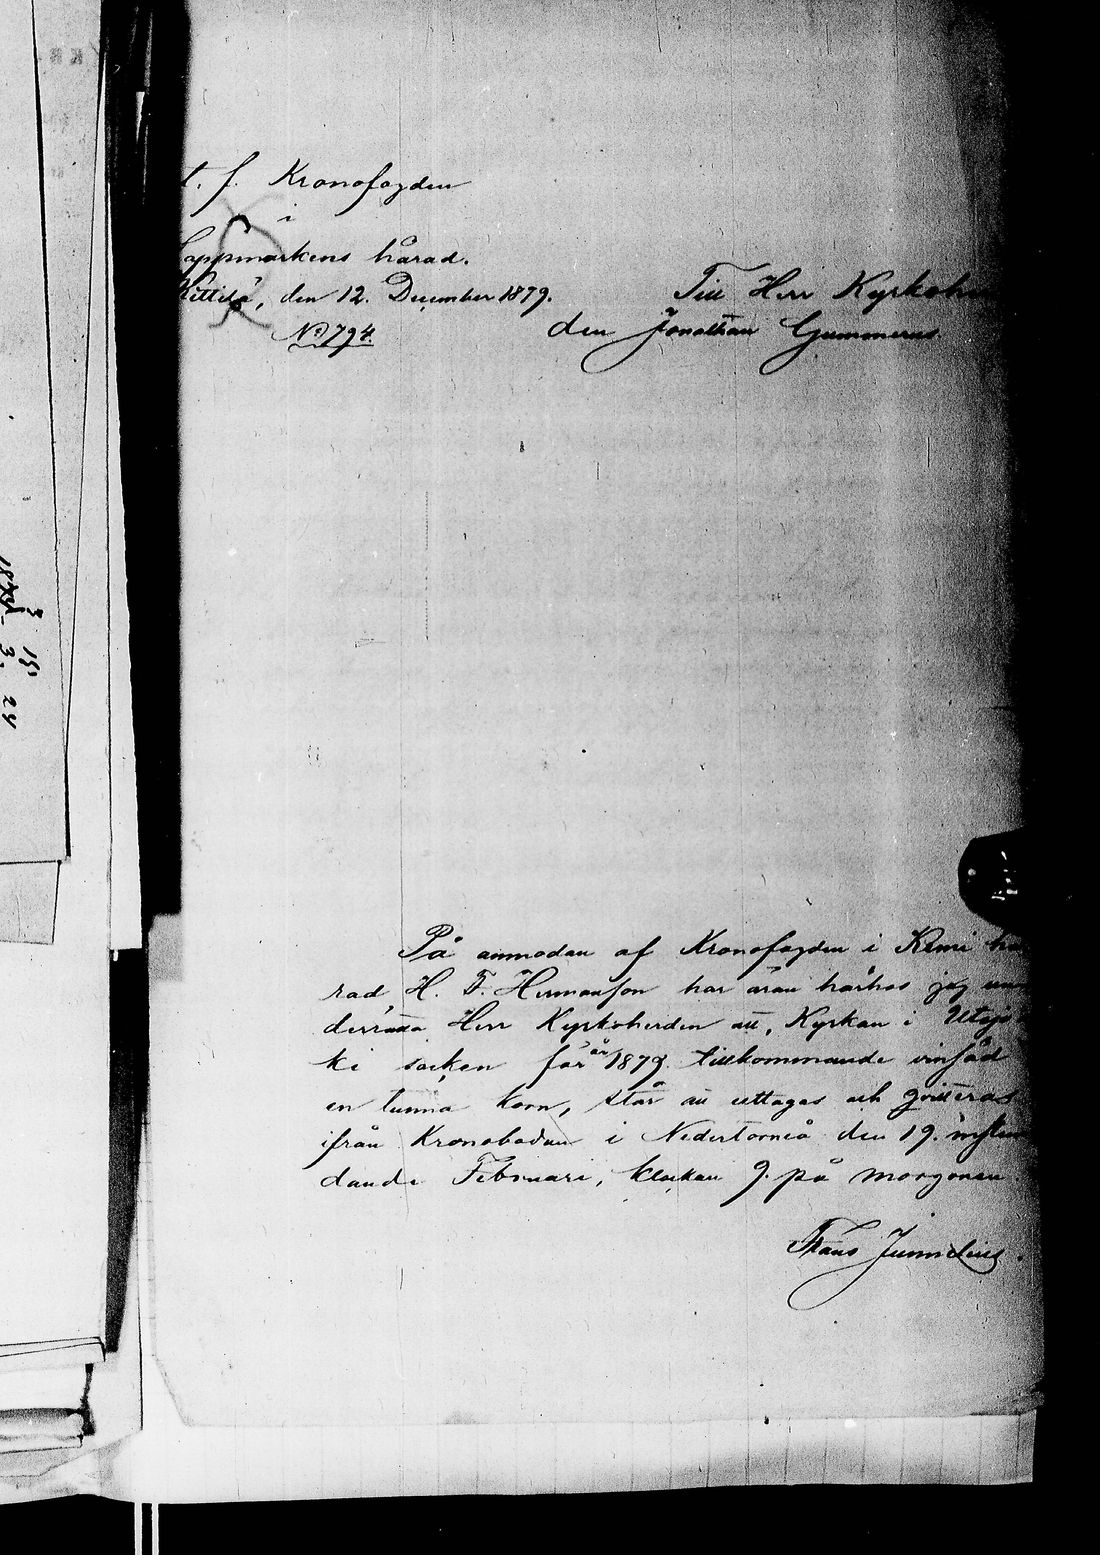 t. f. Kronofogden
i
Lappmarkens härad.
Kittilä, den 12. December 1879.
No 794.
Till Herr Kyrkoher
den Jonathan Gummerus.
På anmodan af Kronofogden i Kemi hä
rad H. F. Hermanson har äran härhos jag un
derrätta Herr Kyrkoherden att, Kyrkan i Utsjo
ki socken för år 1879 tillkommande vinsäd
en tunna korn, står att uttagas och qvitteras
ifrån Kronoboden i Nedertorneå den 19. instun
dande Februari, klockan 9. på morgonen.
Frans Junnelius.